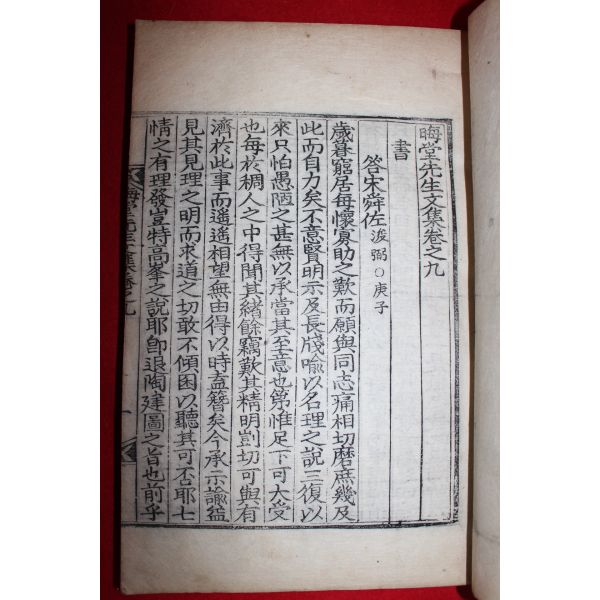 晦堂先生文集卷之九
書
答宋舜佐 浚弼○庚子
歲暮窮居每懷寡助之歎而願與同志痛相切磨庶幾及
此而自力矣不意賢明示及長牋喩以名理之說三復以
來只怕愚陋之甚無以承當其至意也第惟足下可大受
也每於稠人之中得聞其緖餘竊歎其精明剴切可與有
濟於此事而遙遙相望無由得以時盍簪矣今承示諭益
見其見理之明而求道之切敢不傾囷以聽其可否耶七
情之有理發豈特高峯之說耶卽退陶建圖之旨也前乎
晦堂先生文集卷之九
一